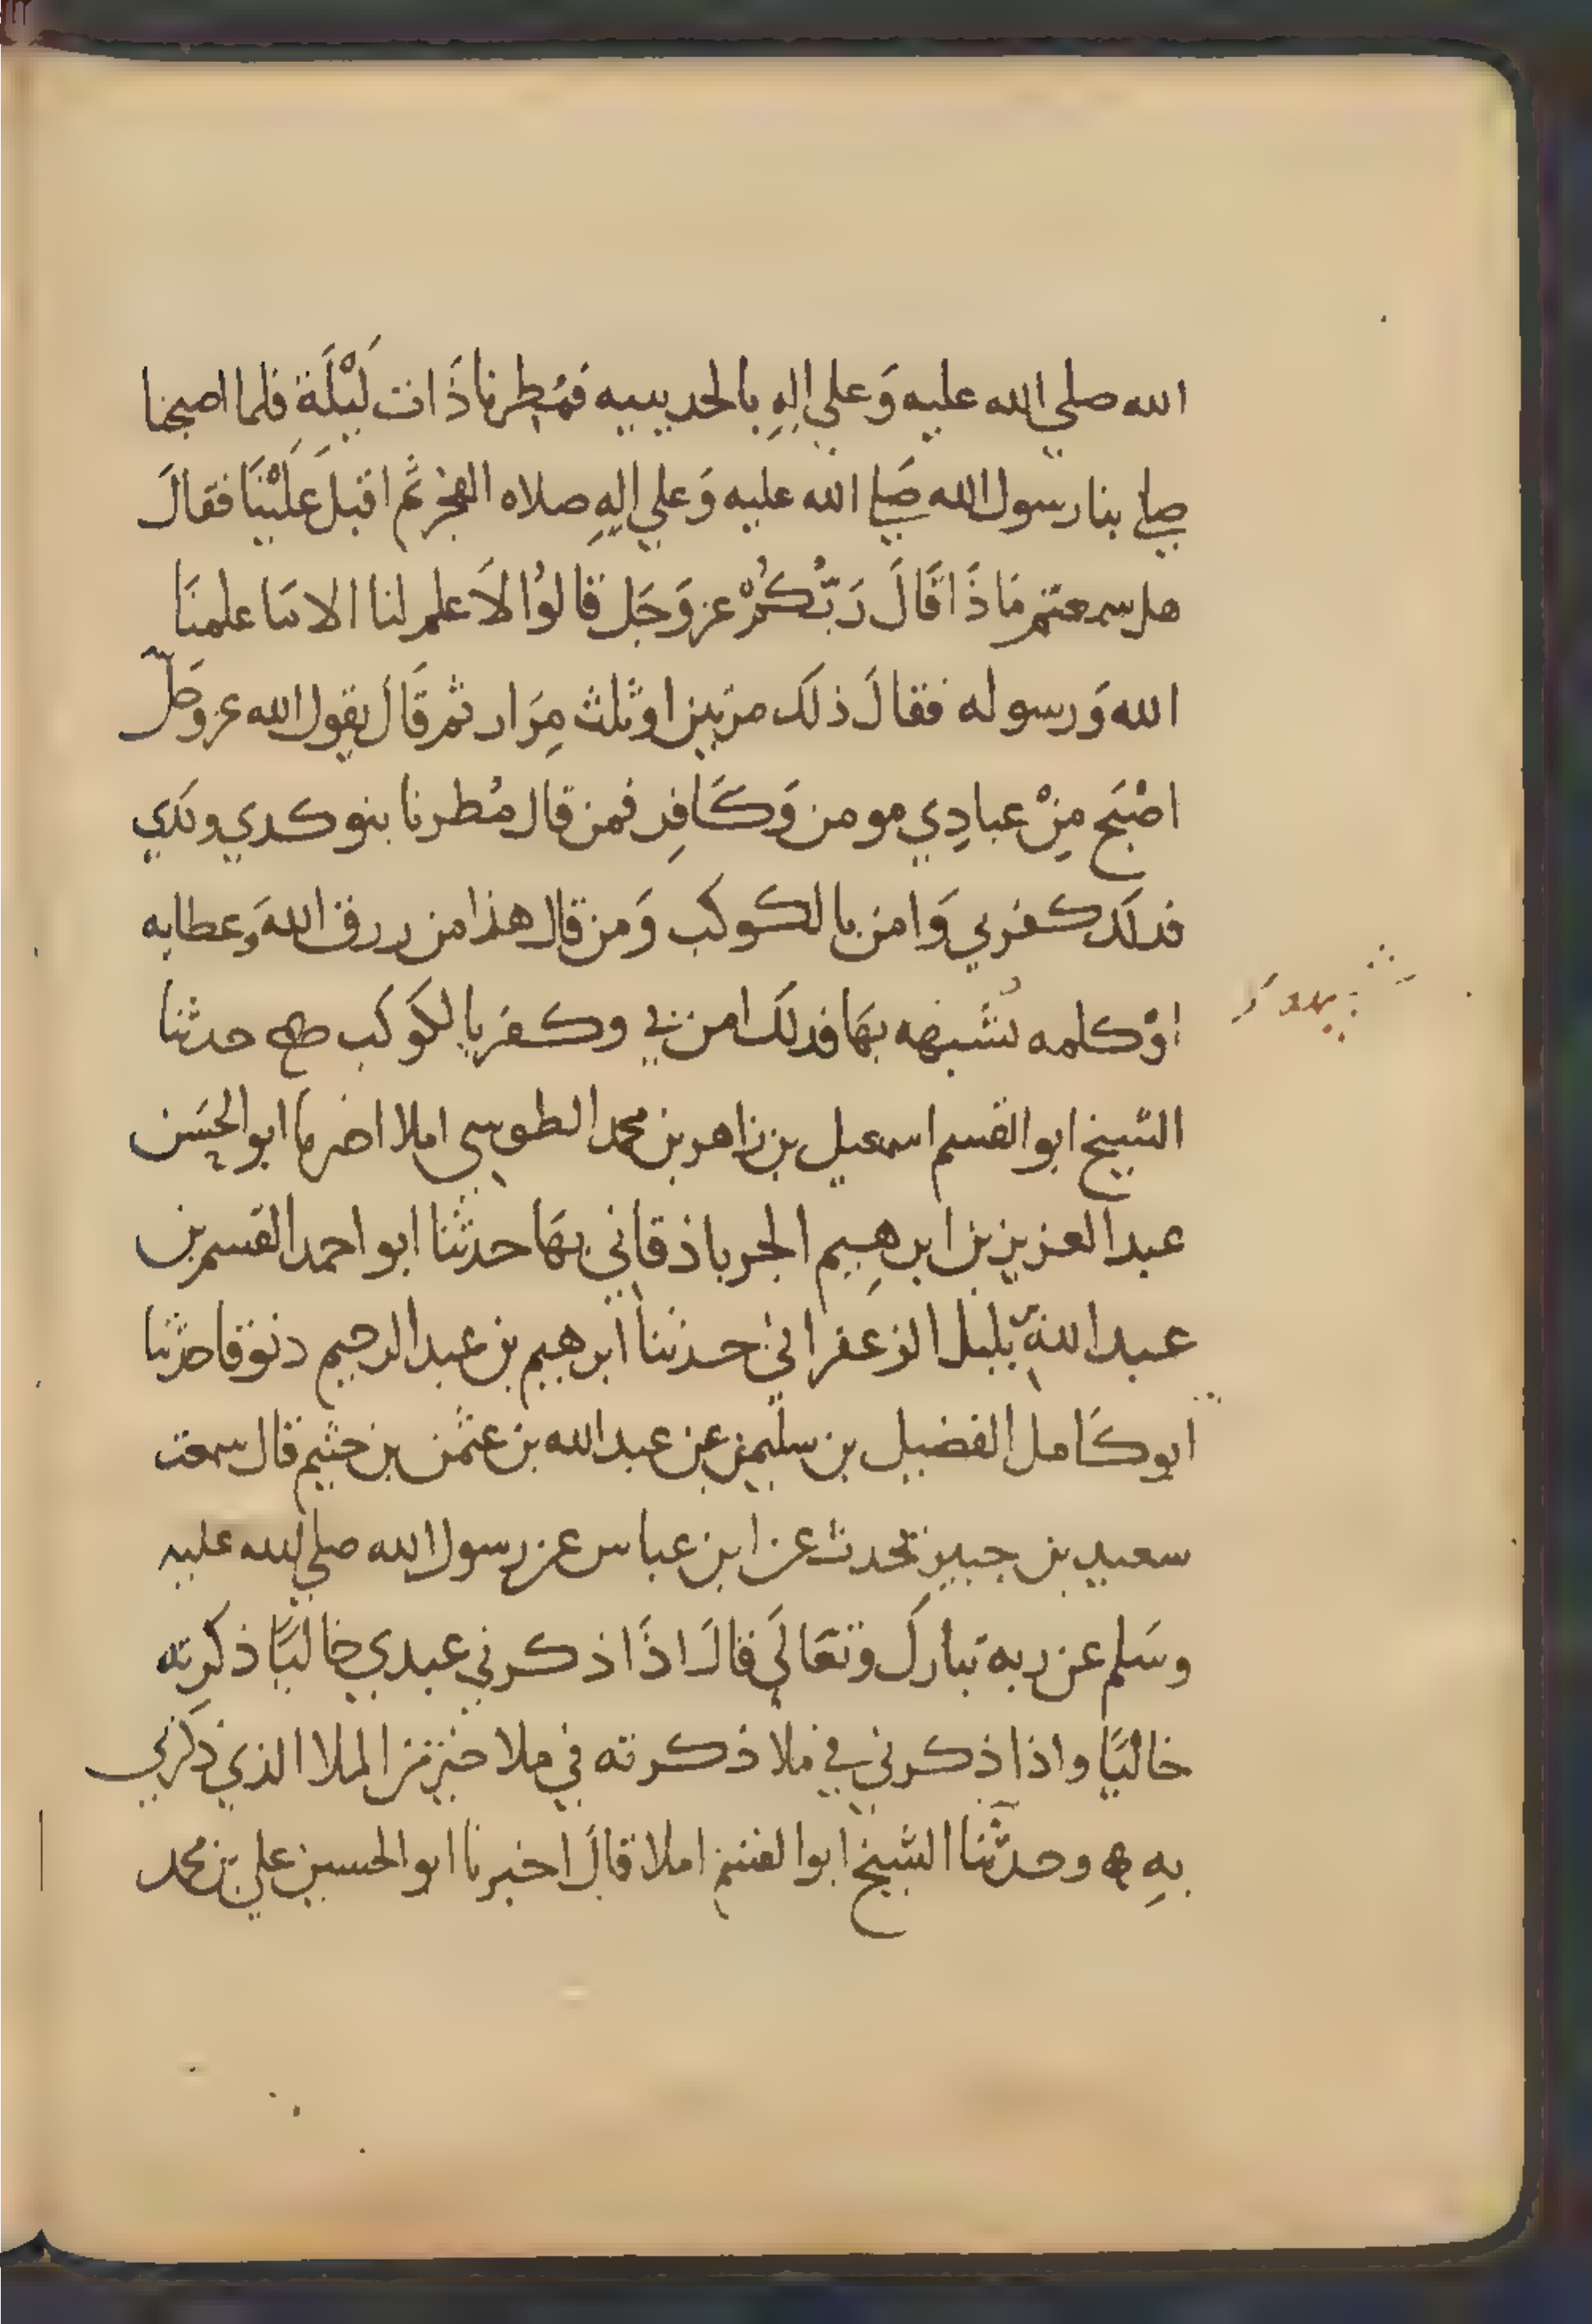 الله صلي الله عليه وَعلي الِهِ بالحديبيه فمُطِرنا ذَات لَيْلَةِ فلما اصبحنا
صلي بنا رسول الله صَلي الله عليه وَعلي الِهِ صلاه الفجر ثم اقبلَ عَلَيْنَا فقالَ
هل سمعتم مَاذَا قَالَ رَبُّكُمْ عز وَجَل قالوُا لاَ علم لنا الا مَا علمنَا
الله وَرسوله فقالَ ذلَك مرتين او ثلث مِرَار ثم قَالَ يقول الله عز وجَل
اصْبَح مِنْ عبادِي مومن وَكَافِر فمن قال مُطرنا بنو كدي وكدي
فدلَك كفر بي وَامن بالكوكب وَمن قال هذا من ررق الله وَعطايه
اوْ كلمه تُشبهه بهَا فدلَك امن بي وكفر بالكوكب صح حدثنا
الشيخ ابو القسم اسمعيل بن زاهر بن محمد الطوسي املا اخبرنا ابو الحسَن
عبد العزيز بن ابرهِيم الجرباذقاني بهَا حدثنا ابو احمد القسم بن
عبد الله بلبل الزعفراني حدثنا ابرهيم بن عبد الرحيم دنوقا حدثنا
ابو كَامل الفضيل بن سليمن عن عبد الله بن عثمن بن خثيم قال سمعت
سعيد بن جبير يحدث عن ابن عباس عن رسول الله صلي الله عليه
وسَلم عن ربه تبارك وتعَالَي قالَ اذَا ذكرني عبدي خاليًا ذكرته
خاليًا واذا ذكرني في ملا ذكرته في ملا خير من الملا الذي ذكرني
بهِ ه وحدثنا الشيخ ابو الغنيم املا قالَ اخبرنا ابو الحسين علي بن محمد